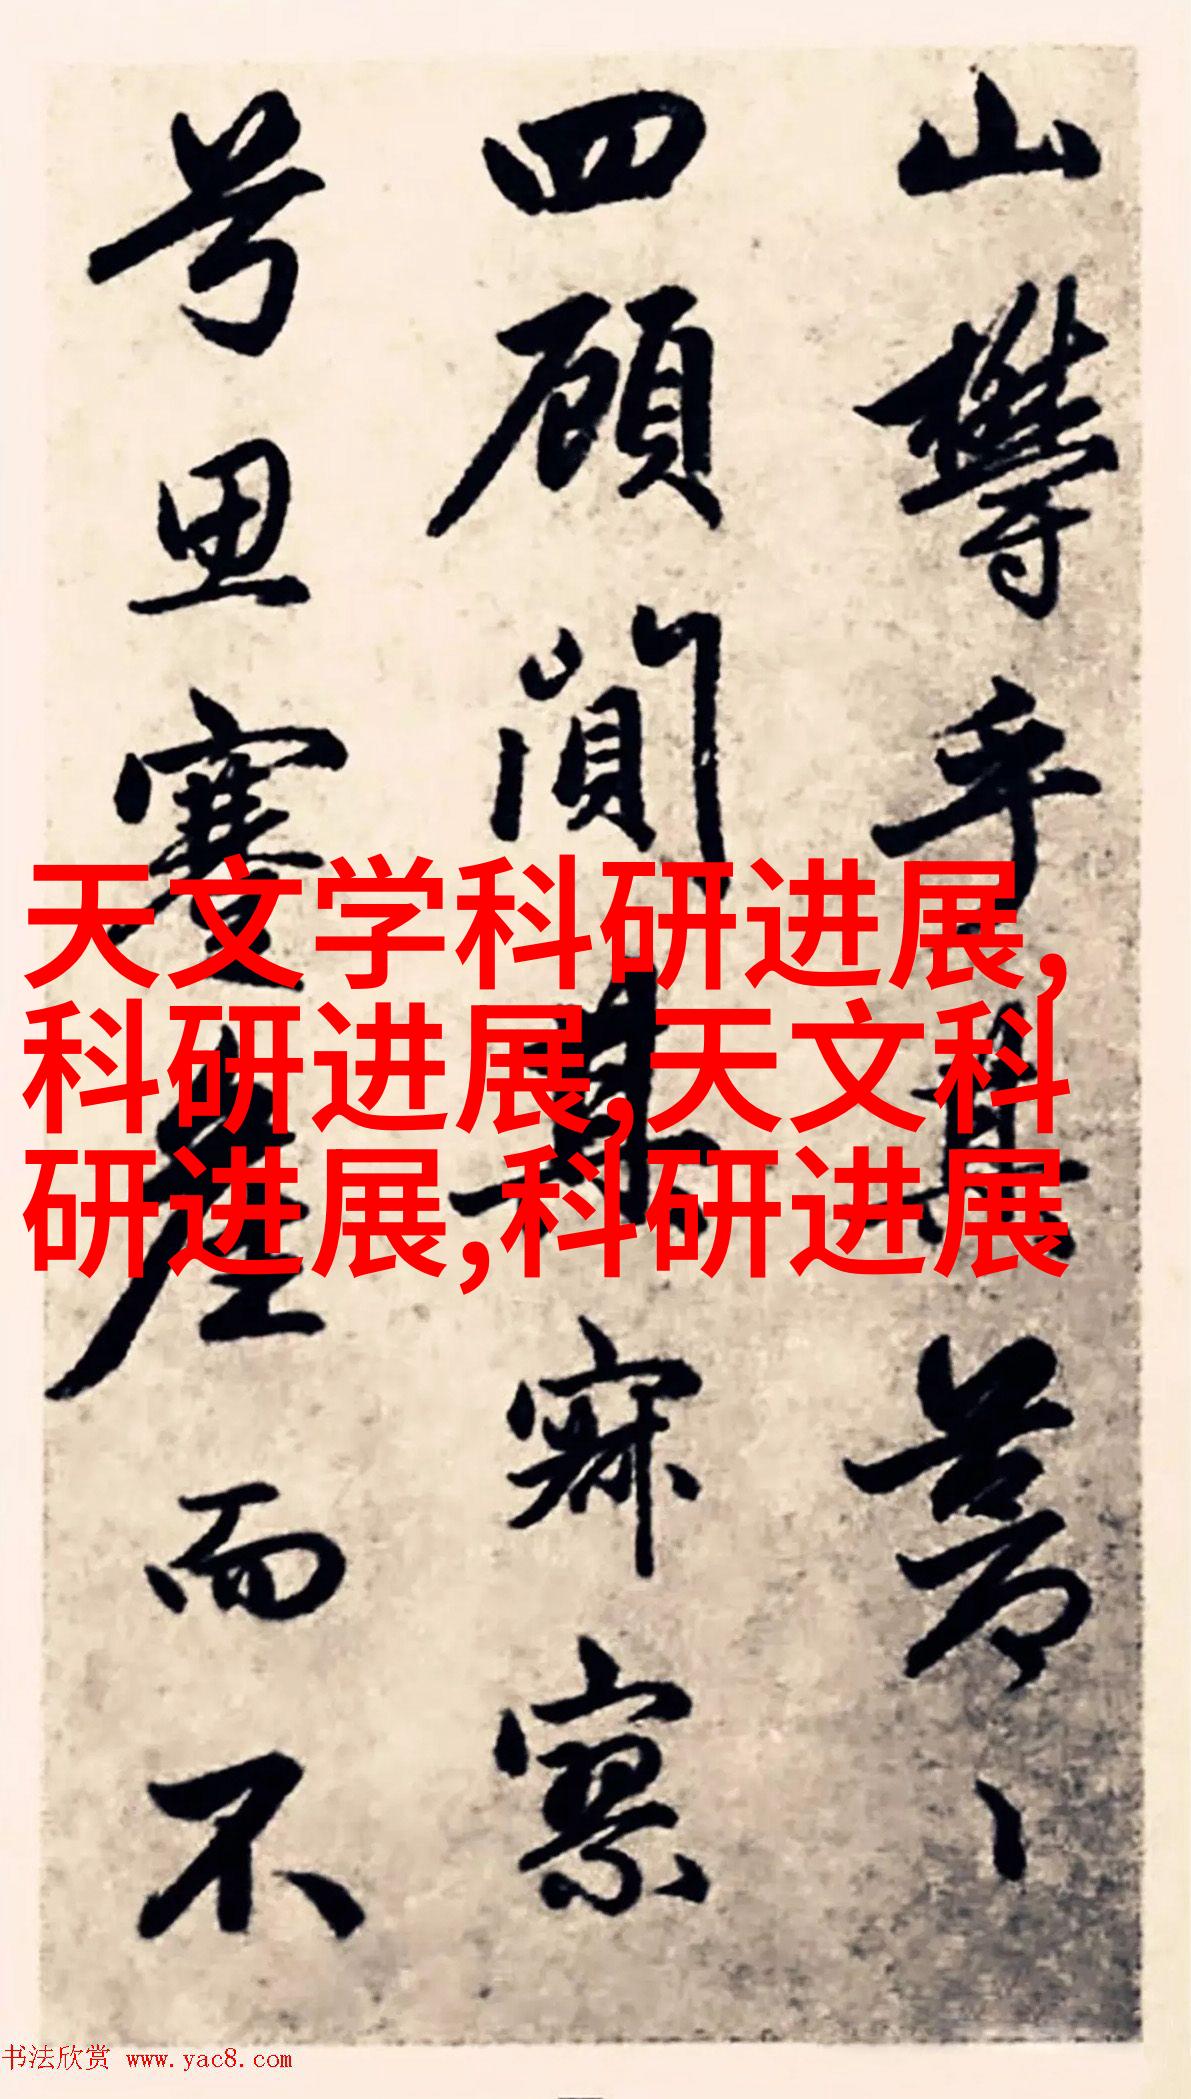 山欝乎其蒼〻
四顧闃其寂寥
兮思蹇産而不
天文学科研进展,
科研进展,天文科
研进展,科研进展
书法欣赏 www.yac8.com